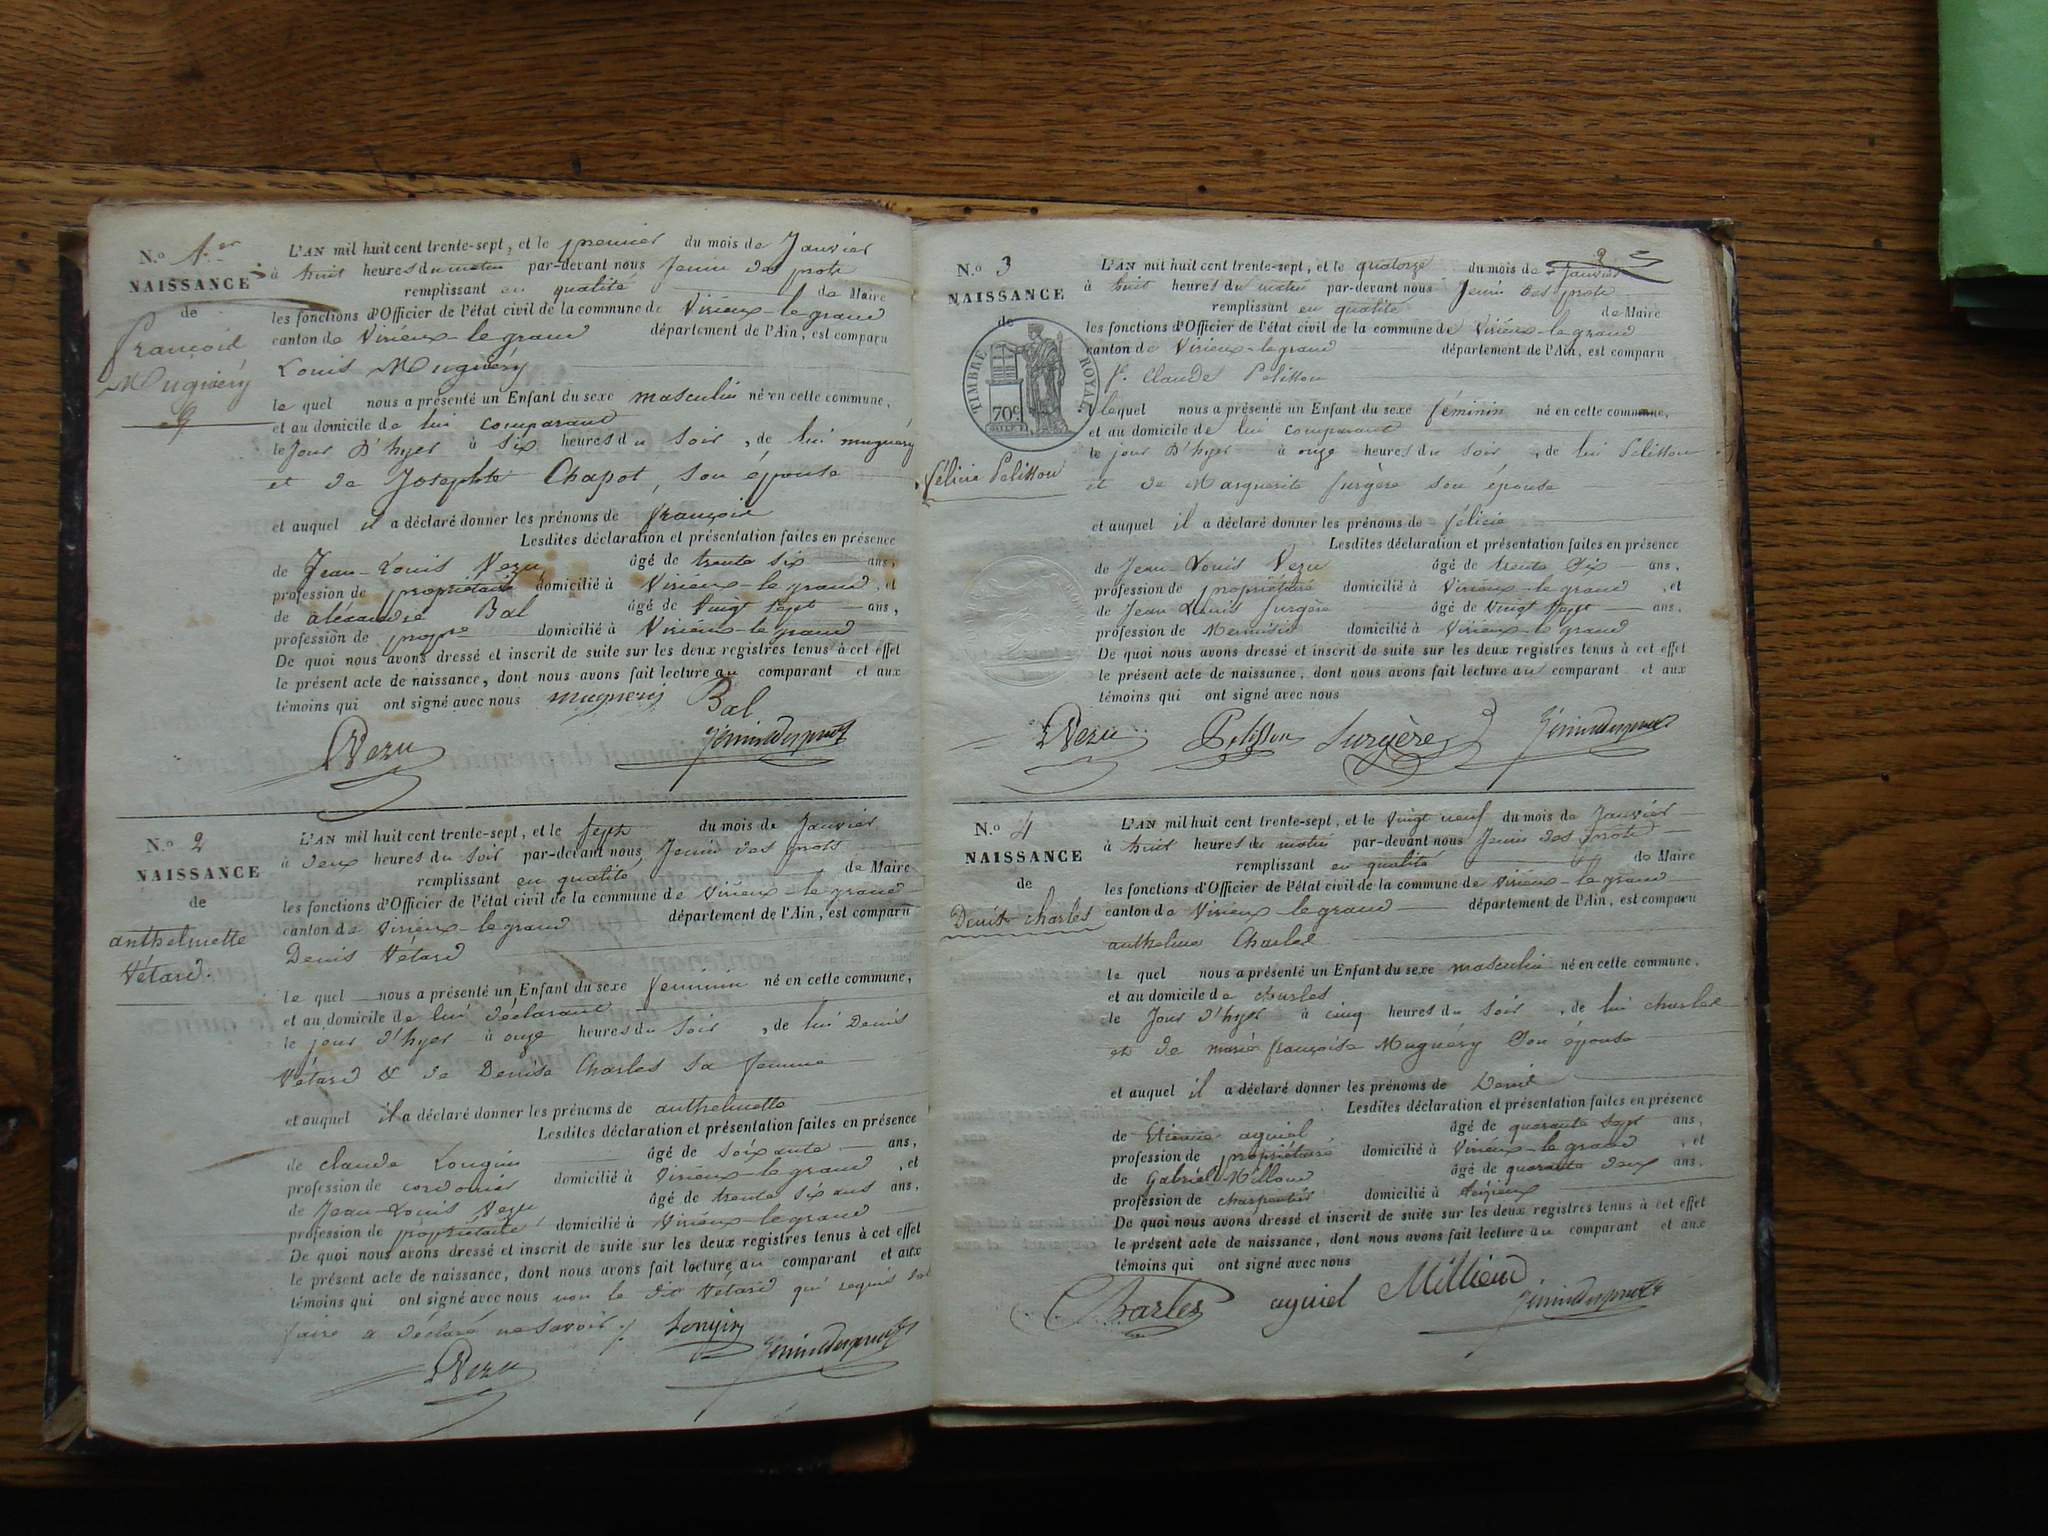 N.o 1.er
NAISSANCE
de
François
Muguéry
L'AN mil huit cent trente-sept, et le premier du mois de Janvier
à huit heures du matin par-devant nous Jenin des prots
remplissant en qualité de Maire
les fonctions d'Officier de l'état civil de la commune de Virieux-le grand
canton de Virieux-le grand département de l'Ain, est comparu
Louis Muguéry
le quel nous a présenté un Enfant du sexe masculin né en cette commune,
et au domicile de lui comparant
le Jour d'hyer à six heures du soir, de lui muguéry
et de Josephte Chapot, son épouse
et auquel il a déclaré donner les prénoms de françois
Lesdites déclaration et présentation faites en présence
de Jean-Louis Vezu âgé de trente six ans,
profession de propriétaire domicilié à Virieux-le grand, et
de aléxandre Bal âgé de vingt sept ans,
profession de propre domicilié à Virieux-le grand
De quoi nous avons dressé et inscrit de suite sur les deux registres tenus à cet effet
le présent acte de naissance, dont nous avons fait lecture au comparant et aux
témoins qui ont signé avec nous muguery Bal
Vezu Jenindesprots
N.o 2
NAISSANCE
de
anthelmette
Vétard.
L'AN mil huit cent trente-sept, et le sept du mois de Janvier
à deux heures du soir par-devant nous Jenin des prots
remplissant en qualité de Maire
les fonctions d'Officier de l'état civil de la commune de Virieux-le grand
canton de Virieux-le grand département de l'Ain, est comparu
Denis Vétard
le quel nous a présenté un Enfant du sexe féminin né en cette commune,
et au domicile de lui déclarant
le jour d'hyer à onze heures du soir, de lui Denis
Vétard & de Denise Charles sa femme
et auquel il a déclaré donner les prénoms de anthelmette
Lesdites déclaration et présentation faites en présence
de claude Longin âgé de soixante ans,
profession de cordonier domicilié à Virieux-le grand, et
de Jean-Louis Vezu âgé de trente six ans ans,
profession de propriétaire domicilié à Virieux-le grand
De quoi nous avons dressé et inscrit de suite sur les deux registres tenus à cet effet
le présent acte de naissance, dont nous avons fait lecture au comparant et aux
témoins qui ont signé avec nous non le dit Vétard qui requis de
faire a déclaré ne savoir. Longin
Vezu Jenindesprots
2
N.o 3
NAISSANCE
de
TIMBRE ROYAL
70c
félicie Pelisson
L'AN mil huit cent trente-sept, et le quatorze du mois de Janvier
à huit heures du matin par-devant nous Jenin des prots
remplissant en qualité de Maire
les fonctions d'Officier de l'état civil de la commune de Virieux-le grand
canton de Virieux-le grand département de l'Ain, est comparu
Claude Pelisson
lequel nous a présenté un Enfant du sexe féminin né en cette commune,
et au domicile de lui comparant
le jour d'hyer à onze heures du soir, de lui Pelisson
et de Marguerite Surgère son épouse
et auquel il a déclaré donner les prénoms de félicie
Lesdites déclaration et présentation faites en présence
de Jean Louis Vezu âgé de trente six ans,
profession de propriétaire domicilié à Virieux-le grand, et
de Jean Louis Surgère âgé de vingt sept ans,
profession de Menuisier domicilié à Virieux-le grand
De quoi nous avons dressé et inscrit de suite sur les deux registres tenus à cet effet
le présent acte de naissance, dont nous avons fait lecture au comparant et aux
témoins qui ont signé avec nous
Vezu Pelisson Surgère Jenindesprots
N.o 4
NAISSANCE
de
Denis charles
L'AN mil huit cent trente-sept, et le vingt neuf du mois de Janvier
à huit heures du matin par-devant nous Jenin des prots
remplissant en qualité de Maire
les fonctions d'Officier de l'état civil de la commune de Virieux-le grand
canton de Virieux-le grand département de l'Ain, est comparu
anthelme Charles
le quel nous a présenté un Enfant du sexe masculin né en cette commune,
et au domicile de charles
le Jour d'hyer à cinq heures du soir, de lui charles
et de marie françoise Muguéry son épouse
et auquel il a déclaré donner les prénoms de Denis
Lesdites déclaration et présentation faites en présence
de Etienne aguiel âgé de quarante sept ans,
profession de propriétaire domicilié à Virieux-le grand, et
de Gabriel Milliond âgé de quarante deux ans,
profession de charpentier domicilié à
De quoi nous avons dressé et inscrit de suite sur les deux registres tenus à cet effet
le présent acte de naissance, dont nous avons fait lecture au comparant et aux
témoins qui ont signé avec nous
Charles aguiel Milliond Jenindesprots